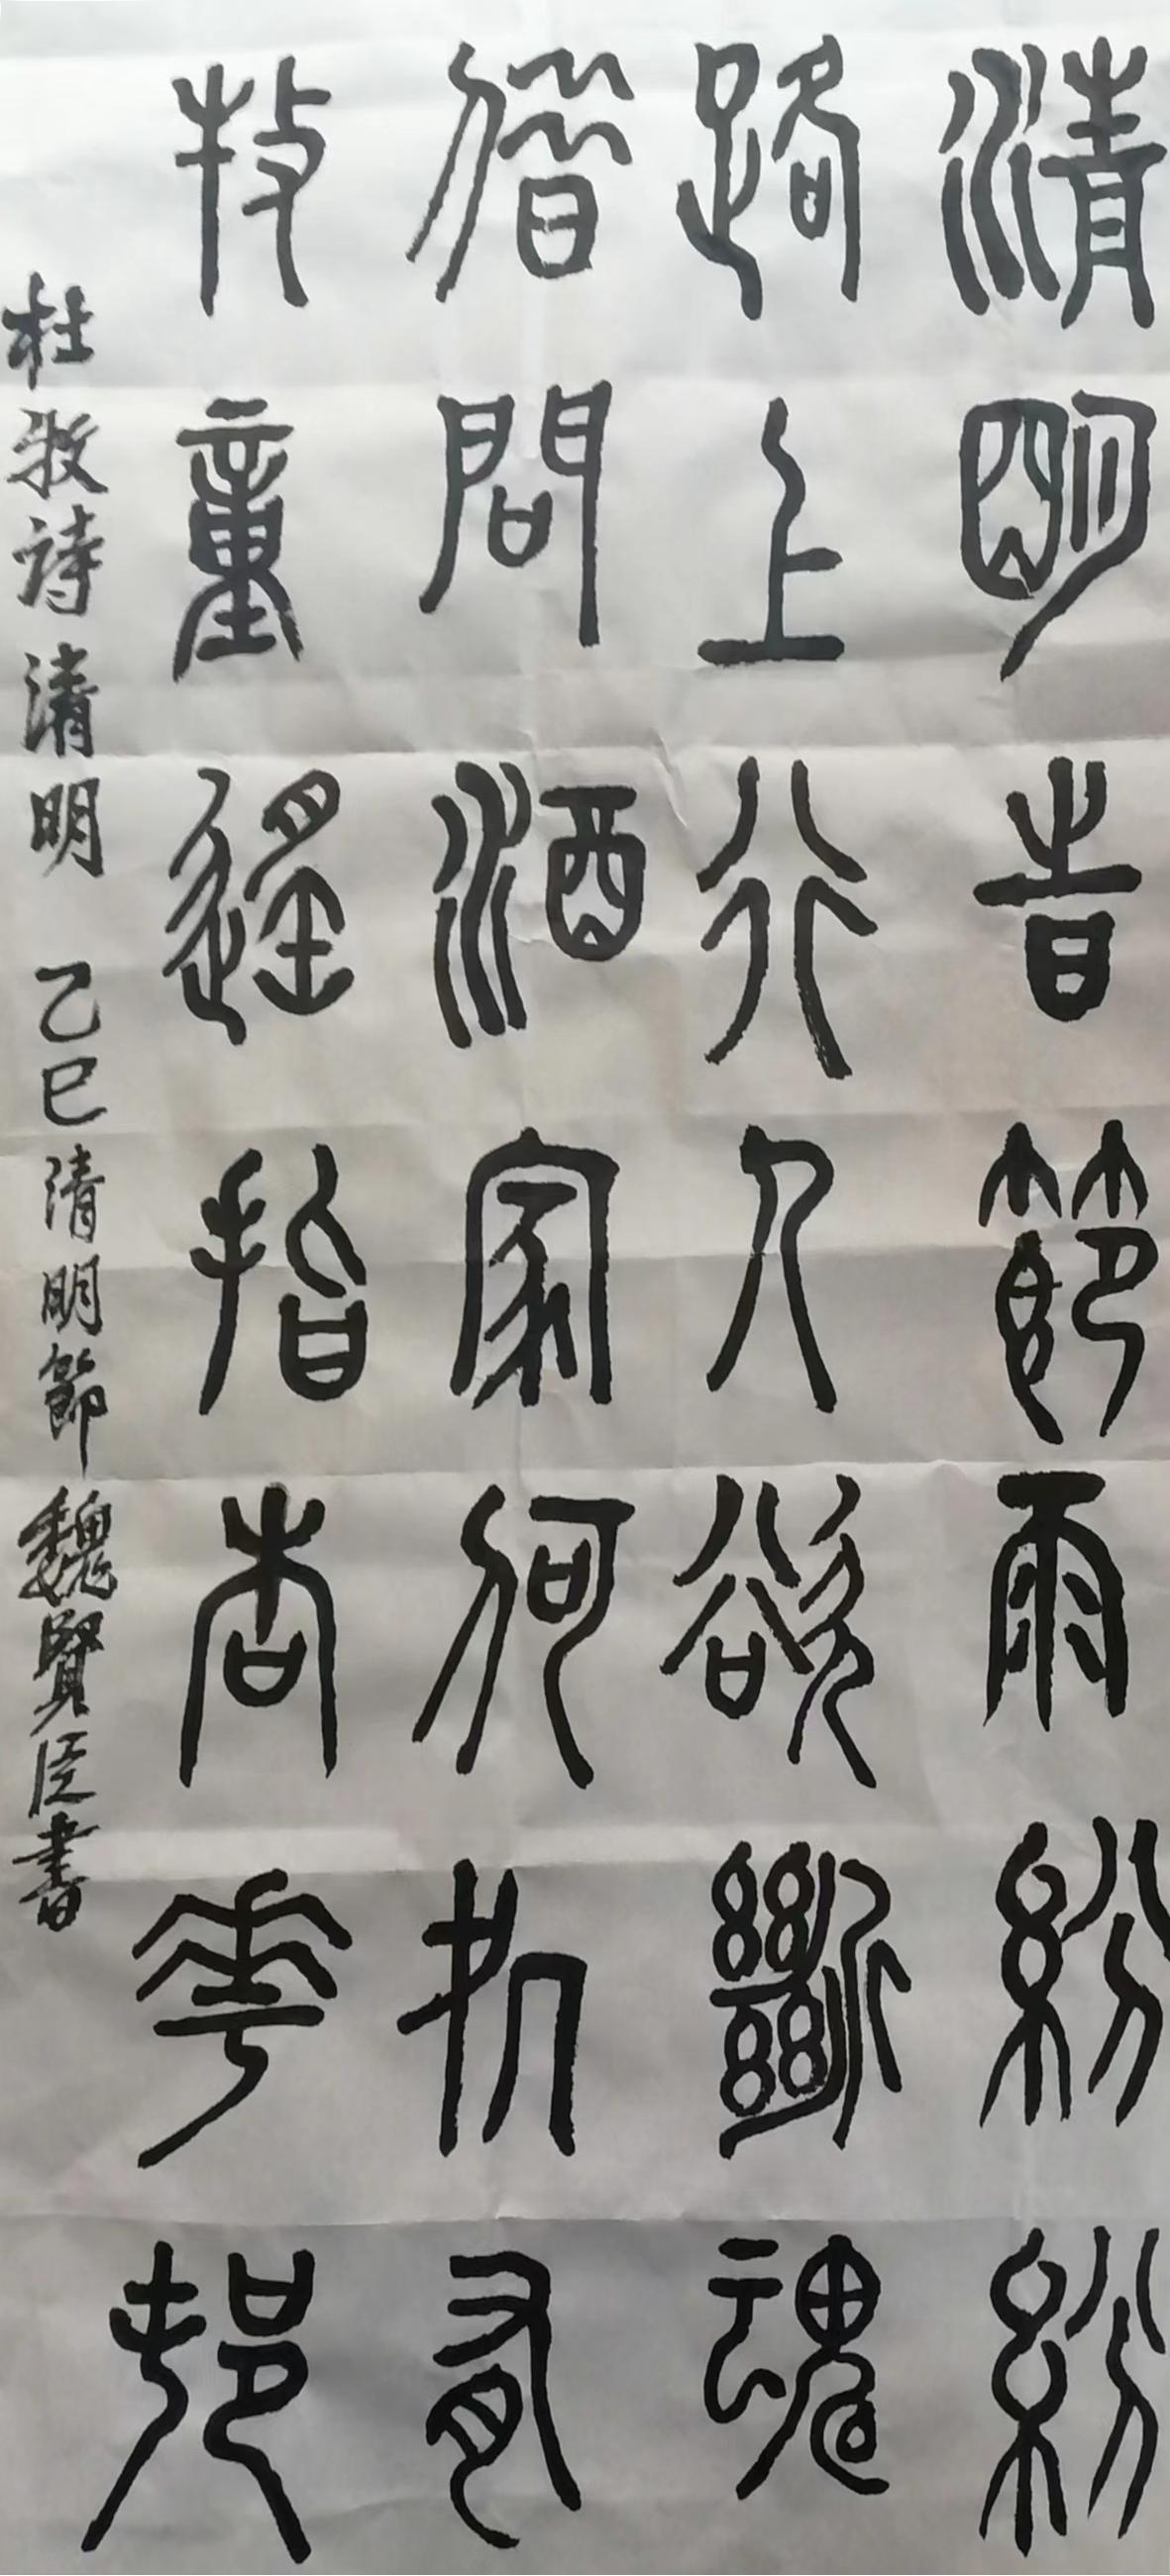 清明旹節雨紛紛
路上行人欲斷魂
借問酒家何処有
牧童遙指杏華邨
杜牧詩清明 乙巳清明節魏賢臣書